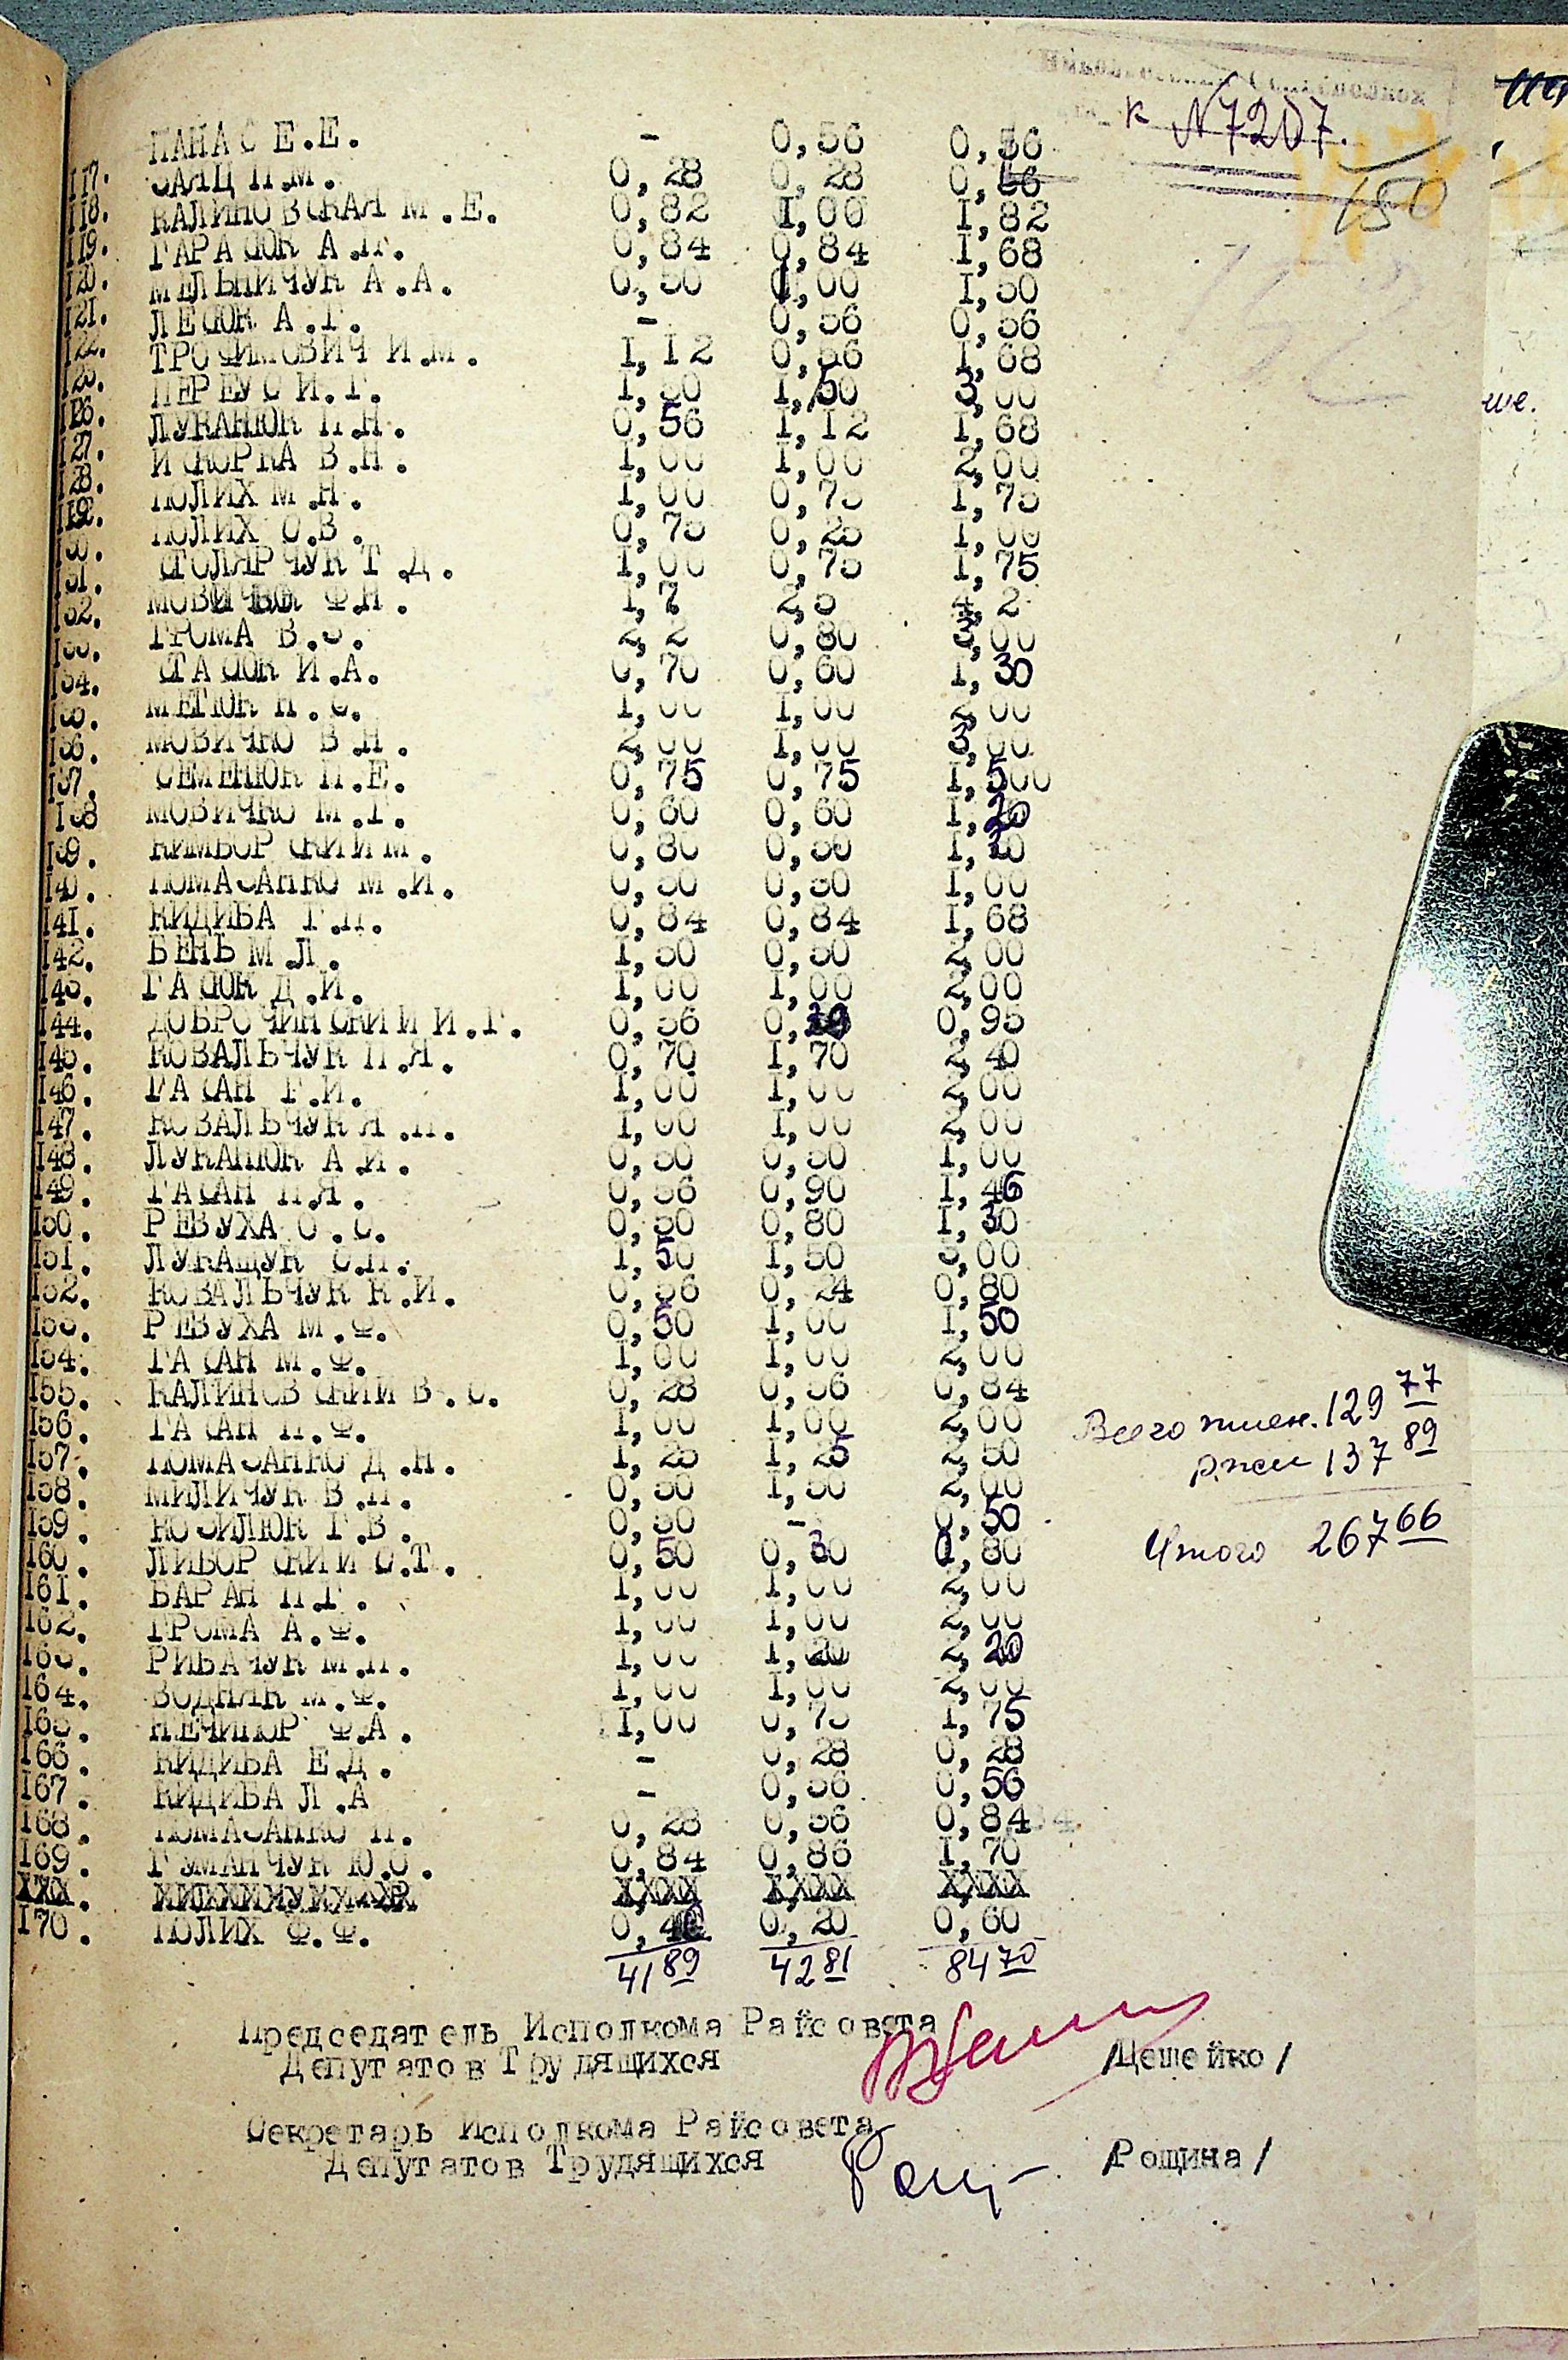 к №7207.
150
ПАНАС Е.Е. - 0,56 0,56
117. ЗАЯЦ П.М. 0,28 0,28 0,56
118. КАЛИНОВСКАЯ М.Е. 0,82 1,00 1,82
119. ГАРАСЮК А.П. 0,84 0,84 1,68
120. МЕЛЬНИЧУК А.А. 0,50 1,00 1,50
121. ЛЕСЮК А.Г. - 0,56 0,56
122. ТРОФИМОВИЧ И.М. 1,12 0,56 1,68
125. ПЕРЕУС И.Г. 1,50 1,50 3,00
126. ЛУКАНЮК П.Н. 0,56 1,12 1,68
127. ИСКОРКА В.Н. 1,00 1,00 2,00
128. ПОЛИХ М.Н. 1,00 0,75 1,75
129. ПОЛИХ О.В. 0,75 0,25 1,00
130. СТОЛЯРЧУК Т.Д. 1,00 0,75 1,75
131. МОВИЧКО Ф.Н. 1,7 2,5 4,2
132. ГРОМА В.З. 2,2 0,80 3,00
133. СТАСЮК И.А. 0,70 0,60 1,30
134. МЕТЮК П.С. 1,00 1,00 2,00
135. МОВИЧКО В.Н. 2,00 1,00 3,00
136. СЕМЕНЮК П.Е. 0,75 0,75 1,500
137. МОВИЧКО М.Г. 0,60 0,60 1,20
138 КИМБОРСКИЙ М. 0,80 0,50 1,30
139. ПОМАЗАНКО М.И. 0,50 0,50 1,00
140. КИДИБА Г.П. 0,84 0,84 1,68
141. БЕНЬ М.Л. 1,50 0,50 2,00
142. ГАСЮК Д.И. 1,00 1,00 2,00
143. ДОБРОЧИНСКИЙ И.Г. 0,56 0,39 0,95
144. КОВАЛЬЧУК П.Я. 0,70 1,70 2,40
145. ГАСАН Г.И. 1,00 1,00 2,00
146. КОВАЛЬЧУК Я.П. 1,00 1,00 2,00
147. ЛУКАНЮК А.И. 0,50 0,50 1,00
148. ГАСАН П.Я. 0,56 0,90 1,46
149. РЕВУХА О.С. 0,50 0,80 1,30
150. ЛУКАЩУК С.П. 1,50 1,50 3,00
151. КОВАЛЬЧУК К.И. 0,56 0,24 0,80
152. РЕВУХА М.Ф. 0,50 1,00 1,50
153. ГАСАН М.Ф. 1,00 1,00 2,00
154. КАЛИНОВСКИЙ В.С. 0,28 0,56 0,84
155. ГАСАН П.Ф. 1,00 1,00 2,00
156. ПОМАЗАНКО Д.Н. 1,25 1,25 2,50
157. МИЛИЧУК В.П. 0,50 1,50 2,00
158. КОЗИЛЮК Г.В. 0,50 - 0,50
159. ЛИБОРСКИЙ О.Т. 0,50 0,30 0,80
160. БАРАН П.Г. 1,00 1,00 2,00
161. ГРОМА А.Ф. 1,00 1,00 2,00
162. РИБАЧУК М.П. 1,00 1,20 2,20
163. ВОДНЯК М.Ф. 1,00 1,00 2,00
164. НЕЧИПОР Ф.А. 1,00 0,75 1,75
165. КИДИБА Е.Д. - 0,28 0,28
166. КИДИБА Л.А - 0,56 0,56
167. ПОМАЗАНКО П. 0,28 0,56 0,84
168. ГУМАНЧУК Ю.О. 0,84 0,86 1,70
169.
170. ПОЛИХ Ф.Ф. 0,40 0,20 0,60
41 89 42 81 84 70
Всего пшен. 129 77
ржи 137 89
Итого 267 66
Председатель Исполкома Райсовета
Депутатов Трудящихся /Цешейко/
Секретарь Исполкома Райсовета
Депутатов Трудящихся /Рощина/